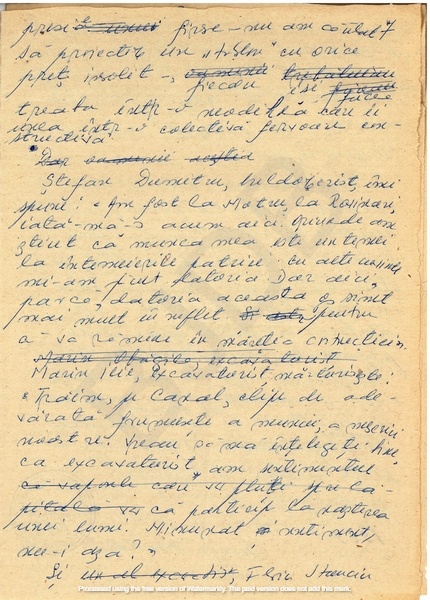 presi firse - nu am căutat
să proiectez un „ cu orice
preț insolit -, oamenii trebăluiau
fiecare își făcea
treaba într-o modestă care îi
unea într-o colectivă fervoare con-
structivă
Dar oamenii aceștia
Ștefan Dumitru, buldozerist, îmi
spune: Am fost la Motru, la Rovinari,
iată-mă-s acum aici. Oriunde am
știut că munca mea este un temei
la întemeierile patriei cu alte
mi-am fut datoria. Dar aici,
parcă, datoria aceasta o simt
mai mult în suflet pentru
a-va rămâne în măreția construcției.
Marin excavatorist
Marin Ilie, excavatorist mărturisește:
"Trăim, pe Canal, clipe de ade-
vărată frumusețe a muncii, a
noastre. Vreau să mă înțelegeți bine
ca excavatorist am sentimentul
ca vapoare care va pluti spre ca-
pitala că particip la nașterea
unei lumi. Minunat sentiment,
nu-i așa?"
Și un al, Florin Stanciu
Processed using the free version of Watermarkly. The paid version does not add this mark.